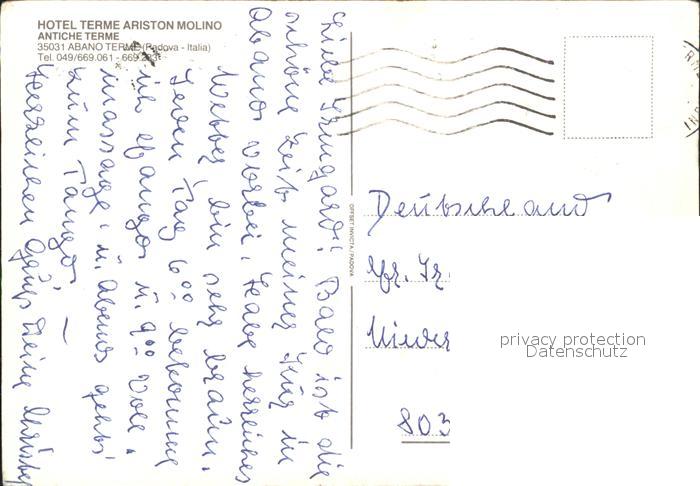 HOTEL TERME ARISTON MOLINO
ANTICHE TERME
35031 ABANO TERME (Padova - Italia)
Tel. 049/669.061 - 669
Liebe Irmgard! Bald ist die
schöne Zeit meiner Kur in
Abano vorbei. Habe herrliches
Wetter, bin sehr braun.
Jeden Tag 6⁰⁰ bekomme
ich Fango u. 9⁰⁰ Voll.
massage. u. Abends gehts
zum Tango. —
Herzlichen Gruß Deine
OFFSET INVICTA / PADOVA
Deutschland
Fr. Ir
Nieder
803
privacy protection
Datenschutz